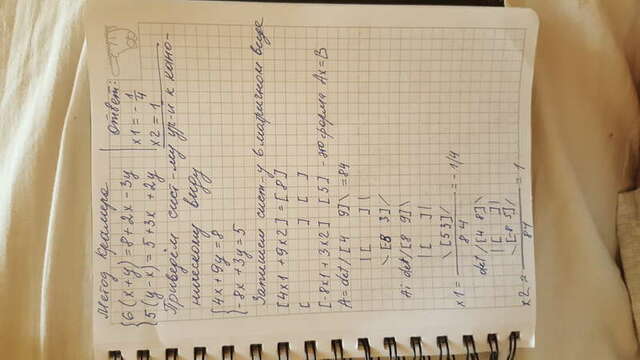 Метод Крамера
{6(x+y)=8+2x-3y
{5(y-x)=5+3x+2y
Ответ:
x1=-1/4
x2=1
Приведём сист-му ур-й к кано-
ническому виду
{4x+9y=8
{-8x+3y=5
Запишем сист-у в матричном виде
[4x1+9x2]=[8]
[ ] [ ]
[-8x1+3x2] [5] - это форма Ax=B
A=det/[4 9]\=84
|[ ]|
\[-8 3]/
Ai det/[8 9]\
|[ ]|
\[5 3]/
x1=————=-1/4
84
det/[4 8]\
|[ ]|
\[-8 5]/
x2=————=1
84